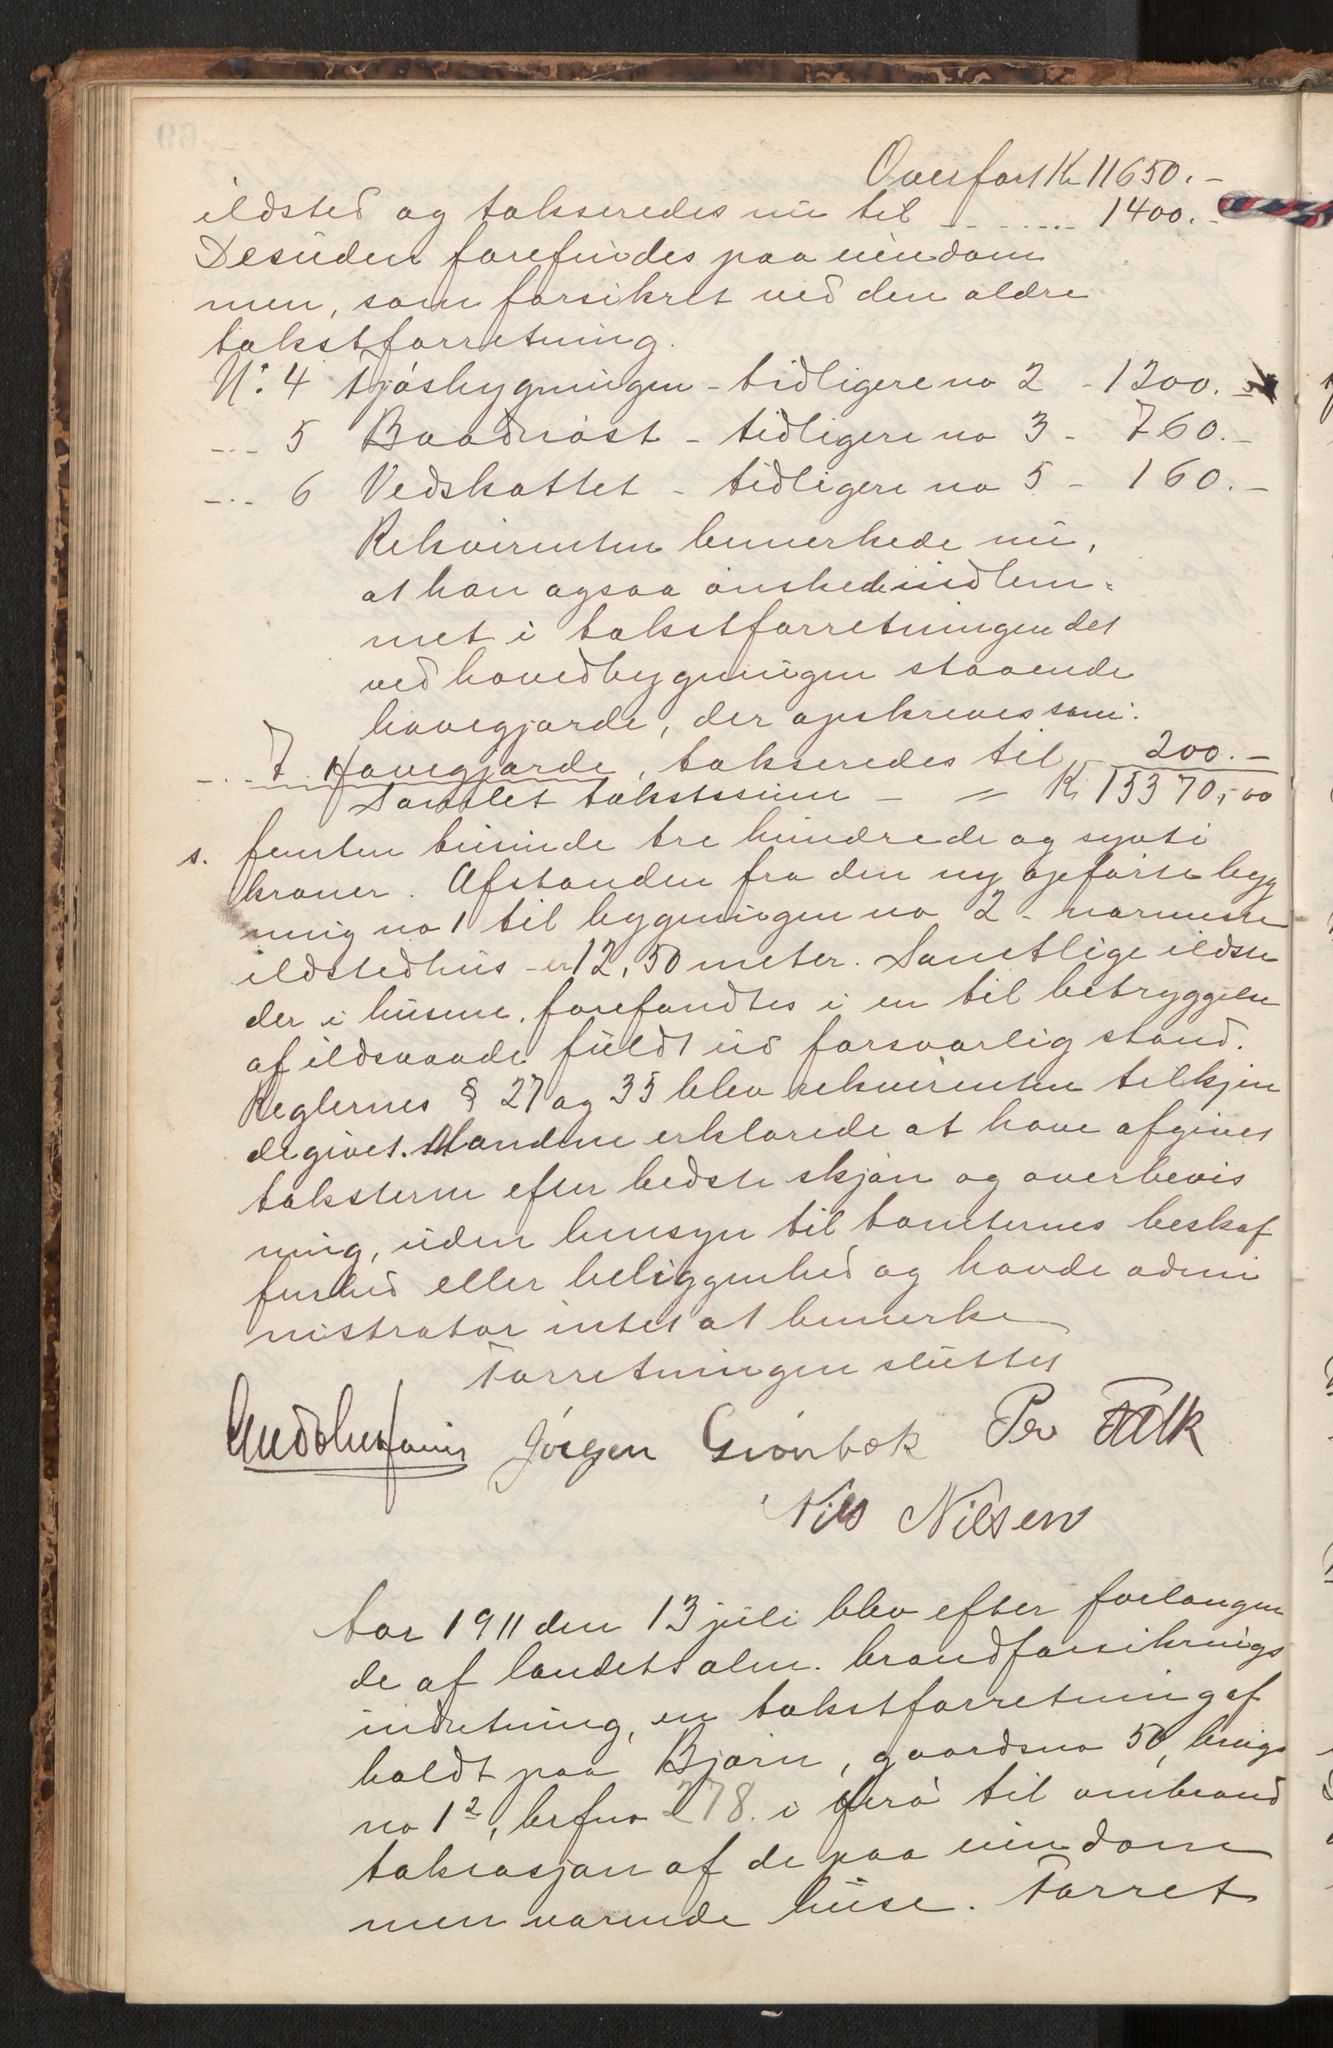 Overført Kr 11650.-
ildsted og takseredes nu til - - - - ... 1400.-
Desuden forefindes paa eiendom
men, som forsikret ved den ældre
takstforretning.
No. 4 Fjøsbygningen - tidligere no 2 - 1200.-
-..- 5 Baadnøst - tidligere no 3 - 760.-
-..- 6 Vedskottet - tidligere no 5 - 160.-
Rekvirenten bemerkede nu,
at han ogsaa ønskede indlem-
met i takstforretningen det
ved hovedbygningen staaende
havegjærde, der opskreves som:
-..- 7. Havegjærde, takseredes til 200.-
Samlet takstssum - " Kr 15370,00
s. femten tusinde tre hundrede og sytti
kroner. Afstanden fra den ny opførte byg
ning no 1 til bygningen no 2 - nærmeste
ildstedhus - er 12,50 meter. Samtlige ildste
der i husene forefandtes i en til betryggelse
af ildsvaade fuldt ud forsvarlig stand.
Reglernes § 27 og 35 blev rekvirenten tilkjen
degivet. Mændene erklærede at have afgivet
taksterne efter bedste skjøn og overbevis
ning, uden hensyn til tomternes beskaf
fenhed eller beliggenhed og havde admi
nistrator intet at bemerke
Forretningen sluttet
Jørgen Grønbæk Per Falk
Nils Nilsen
Aar 1911 den 13 juli blev efter forlangen
de af landets alm. brandforsikrings
indretning, en takstforretning af
holdt paa Bjørn, gaardsno 50, brugs
no 1², brfno 278. i Herø til ombrand
taksasjon af de paa eiendom
men værende huse. Forret